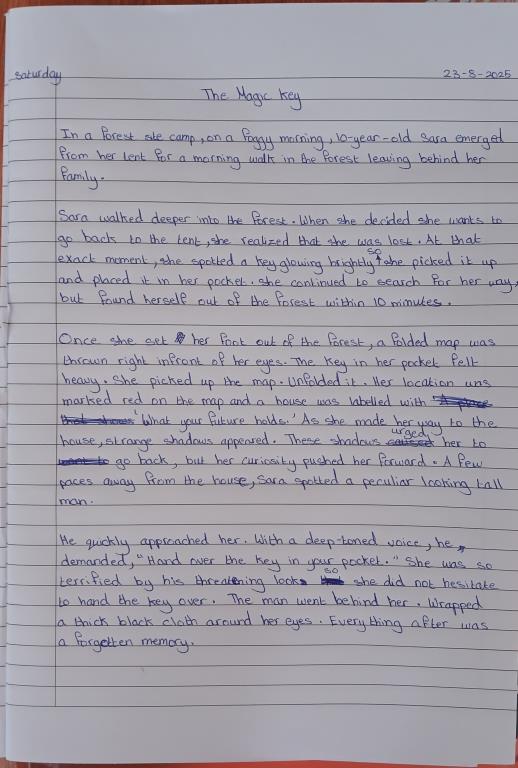 saturday 23-8-2025
The Magic Key
In a forest site camp, on a foggy morning, 10-year-old Sara emerged
from her tent for a morning walk in the forest leaving behind her
family.
Sara walked deeper into the forest. When she decided she wants to
go back to the tent, she realized that she was lost. At that
exact moment, she spotted a key glowing brightly so she picked it up
and placed it in her pocket. she continued to search for her way,
but found herself out of the forest within 10 minutes.
Once she set her foot out of the forest, a folded map was
thrown right infront of her eyes. The key in her pocket felt
heavy. She picked up the map. Unfolded it. Her location was
marked red on the map and a house was labelled with
'What your future holds.' As she made her way to the
house, strange shadows appeared. These shadows urged her to
go back, but her curiosity pushed her forward. A few
paces away from the house, Sara spotted a peculiar looking tall
man.
He quickly approached her. With a deep-toned voice, he
demanded, "Hand over the key in your pocket." She was so
terrified by his threatening look so she did not hesitate
to hand the key over. The man went behind her. Wrapped
a thick black cloth around her eyes. Everything after was
a forgetten memory.